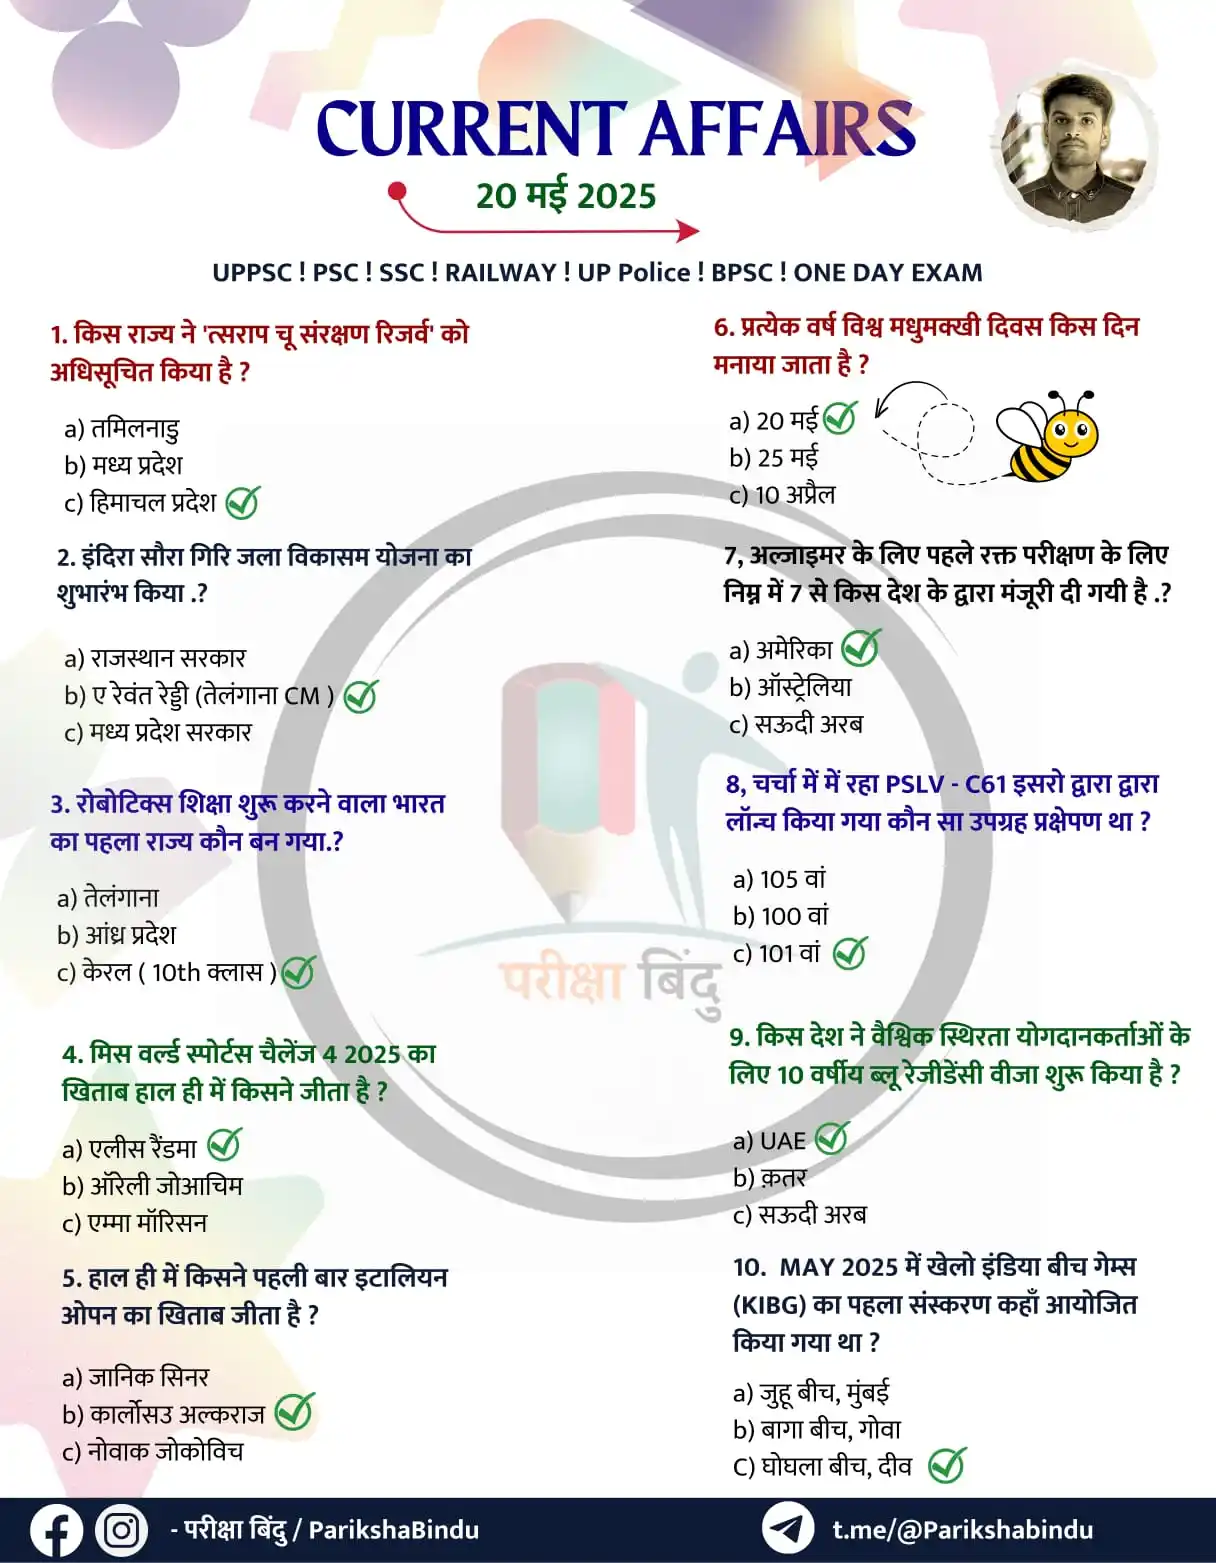 CURRENT AFFAIRS
20 मई 2025
UPPSC ! PSC ! SSC ! RAILWAY ! UP Police ! BPSC ! ONE DAY EXAM
1. किस राज्य ने 'त्सराप चू संरक्षण रिजर्व' को
अधिसूचित किया है ?
a) तमिलनाडु
b) मध्य प्रदेश
c) हिमाचल प्रदेश
2. इंदिरा सौरा गिरि जला विकासम योजना का
शुभारंभ किया .?
a) राजस्थान सरकार
b) ए रेवंत रेड्डी (तेलंगाना CM )
c) मध्य प्रदेश सरकार
3. रोबोटिक्स शिक्षा शुरू करने वाला भारत
का पहला राज्य कौन बन गया.?
a) तेलंगाना
b) आंध्र प्रदेश
c) केरल ( 10th क्लास )
4. मिस वर्ल्ड स्पोर्टस चैलेंज 4 2025 का
खिताब हाल ही में किसने जीता है ?
a) एलीस रैंडमा
b) ऑरेली जोआचिम
c) एम्मा मॉरिसन
5. हाल ही में किसने पहली बार इटालियन
ओपन का खिताब जीता है ?
a) जानिक सिनर
b) कार्लोसउ अल्कराज
c) नोवाक जोकोविच
6. प्रत्येक वर्ष विश्व मधुमक्खी दिवस किस दिन
मनाया जाता है ?
a) 20 मई
b) 25 मई
c) 10 अप्रैल
7, अल्जाइमर के लिए पहले रक्त परीक्षण के लिए
निम्न में 7 से किस देश के द्वारा मंजूरी दी गयी है .?
a) अमेरिका
b) ऑस्ट्रेलिया
c) सऊदी अरब
8, चर्चा में में रहा PSLV - C61 इसरो द्वारा द्वारा
लॉन्च किया गया कौन सा उपग्रह प्रक्षेपण था ?
a) 105 वां
b) 100 वां
c) 101 वां
9. किस देश ने वैश्विक स्थिरता योगदानकर्ताओं के
लिए 10 वर्षीय ब्लू रेजीडेंसी वीजा शुरू किया है ?
a) UAE
b) क़तर
c) सऊदी अरब
10. MAY 2025 में खेलो इंडिया बीच गेम्स
(KIBG) का पहला संस्करण कहाँ आयोजित
किया गया था ?
a) जुहू बीच, मुंबई
b) बागा बीच, गोवा
C) घोघला बीच, दीव
परीक्षा बिंदु
- परीक्षा बिंदु / ParikshaBindu
t.me/@Parikshabindu